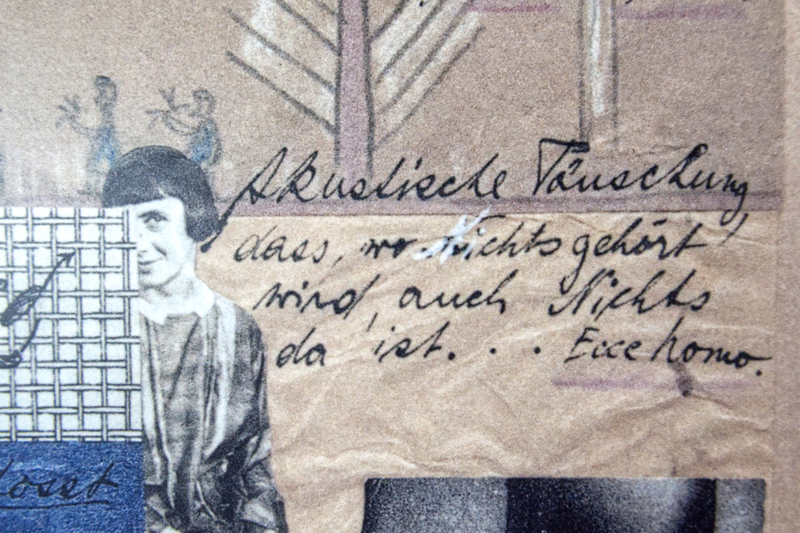 Akustische Täuschung,
dass, wo Nichts gehört
wird, auch Nichts
da ist... Ecce homo.